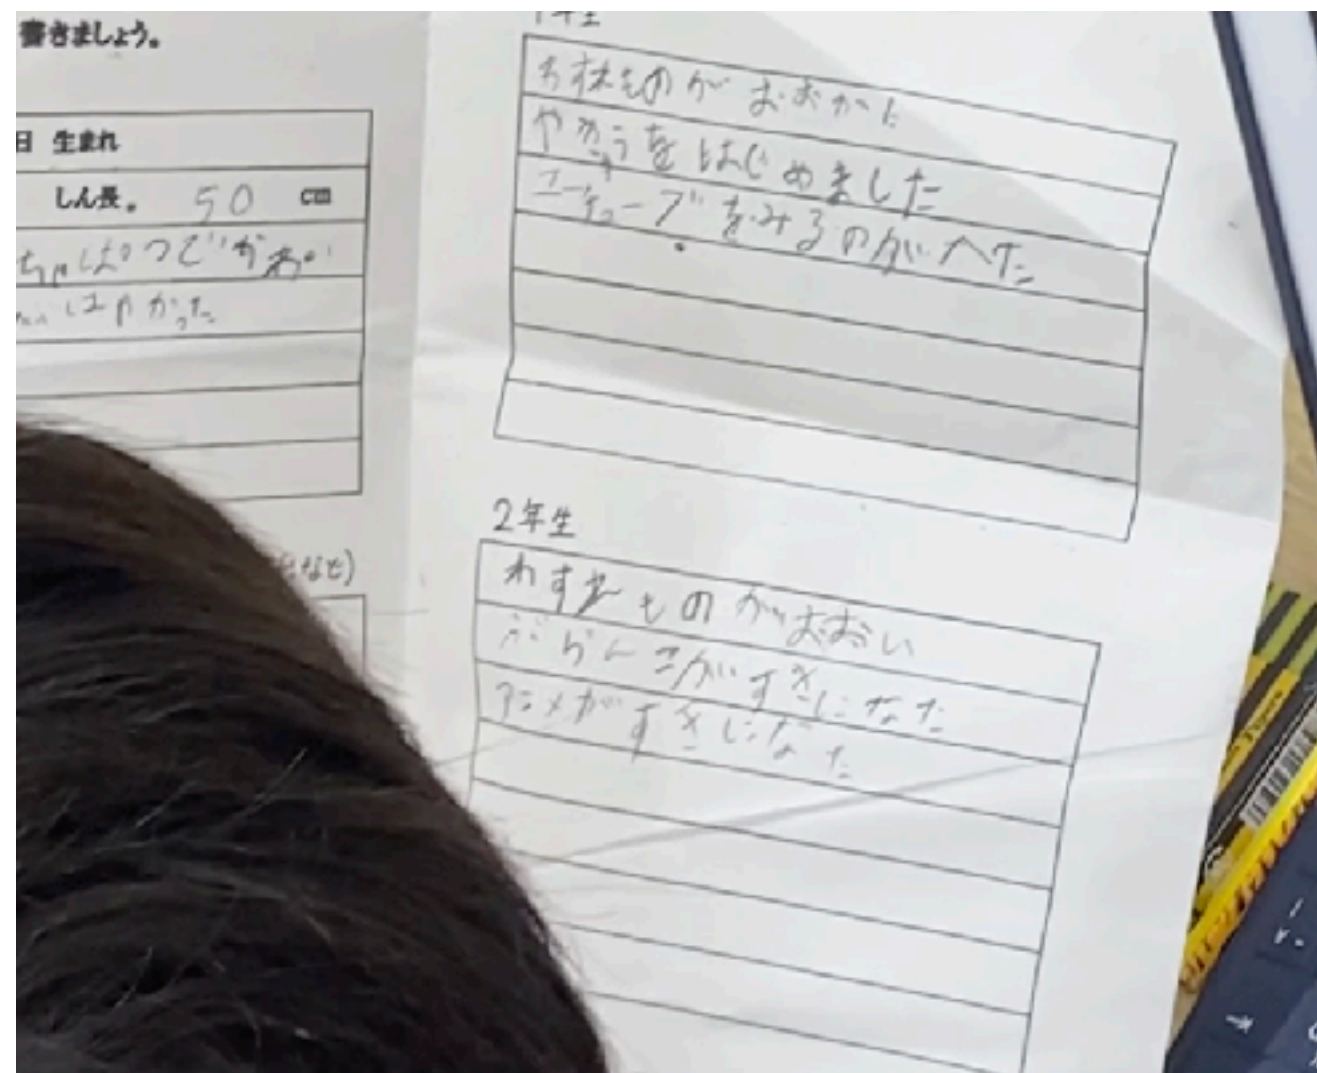 書きましょう。
日 生まれ
しん長。 50 cm
ちゃぱつでかわい
はやかった
など)
1年生
わすれものがおおかた
やきゅうをはじめました
ユーチューブをみるのがへた
2年生
わすれものがおおい
ぶらんこがすきになた
アニメがすきになた